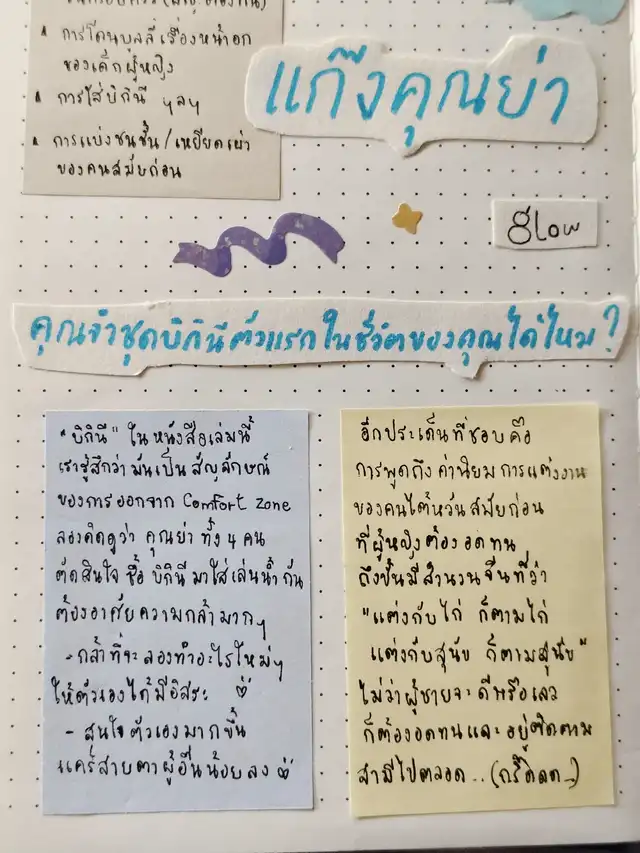 การโดนบูลลี่เรื่องหน้าอก
ของเด็กผู้หญิง
การใส่บิกินี ฯลฯ
การแบ่งชนชั้น/เหยียดเผ่า
ของคนสมัยก่อน
แก๊งคุณย่า
glow
คุณจำชุดบิกินีตัวแรกในชีวิตของคุณได้ไหม?
"บิกินี" ในหนังสือเล่มนี้
เรารู้สึกว่ามันเป็นสัญลักษณ์
ของการออกจาก Comfort zone
ลองคิดดูว่า คุณย่า ทั้ง 4 คน
ตัดสินใจ ซื้อ บิกินี มาใส่เล่นน้ำ กัน
ต้องอาศัยความกล้ามากๆ
- กล้าที่จะลองทำอะไรใหม่ๆ
ให้ตัวเองได้มีอิสระ
- สนใจตัวเองมากขึ้น
แคร์สายตาผู้อื่นน้อยลง
อีกประเด็นที่ชอบคือ
การพูดถึงค่านิยมการแต่งงาน
ของคนไต้หวันสมัยก่อน
ที่ผู้หญิงต้องอดทน
ถึงขั้นมีสำนวนจีนที่ว่า
"แต่งกับไก่ ก็ตามไก่
แต่งกับสุนัข ก็ตามสุนัข"
ไม่ว่าผู้ชายจะดีหรือเลว
ก็ต้องอดทนและอยู่ติดตาม
สามีไปตลอด.. (กรี๊ดดด..)